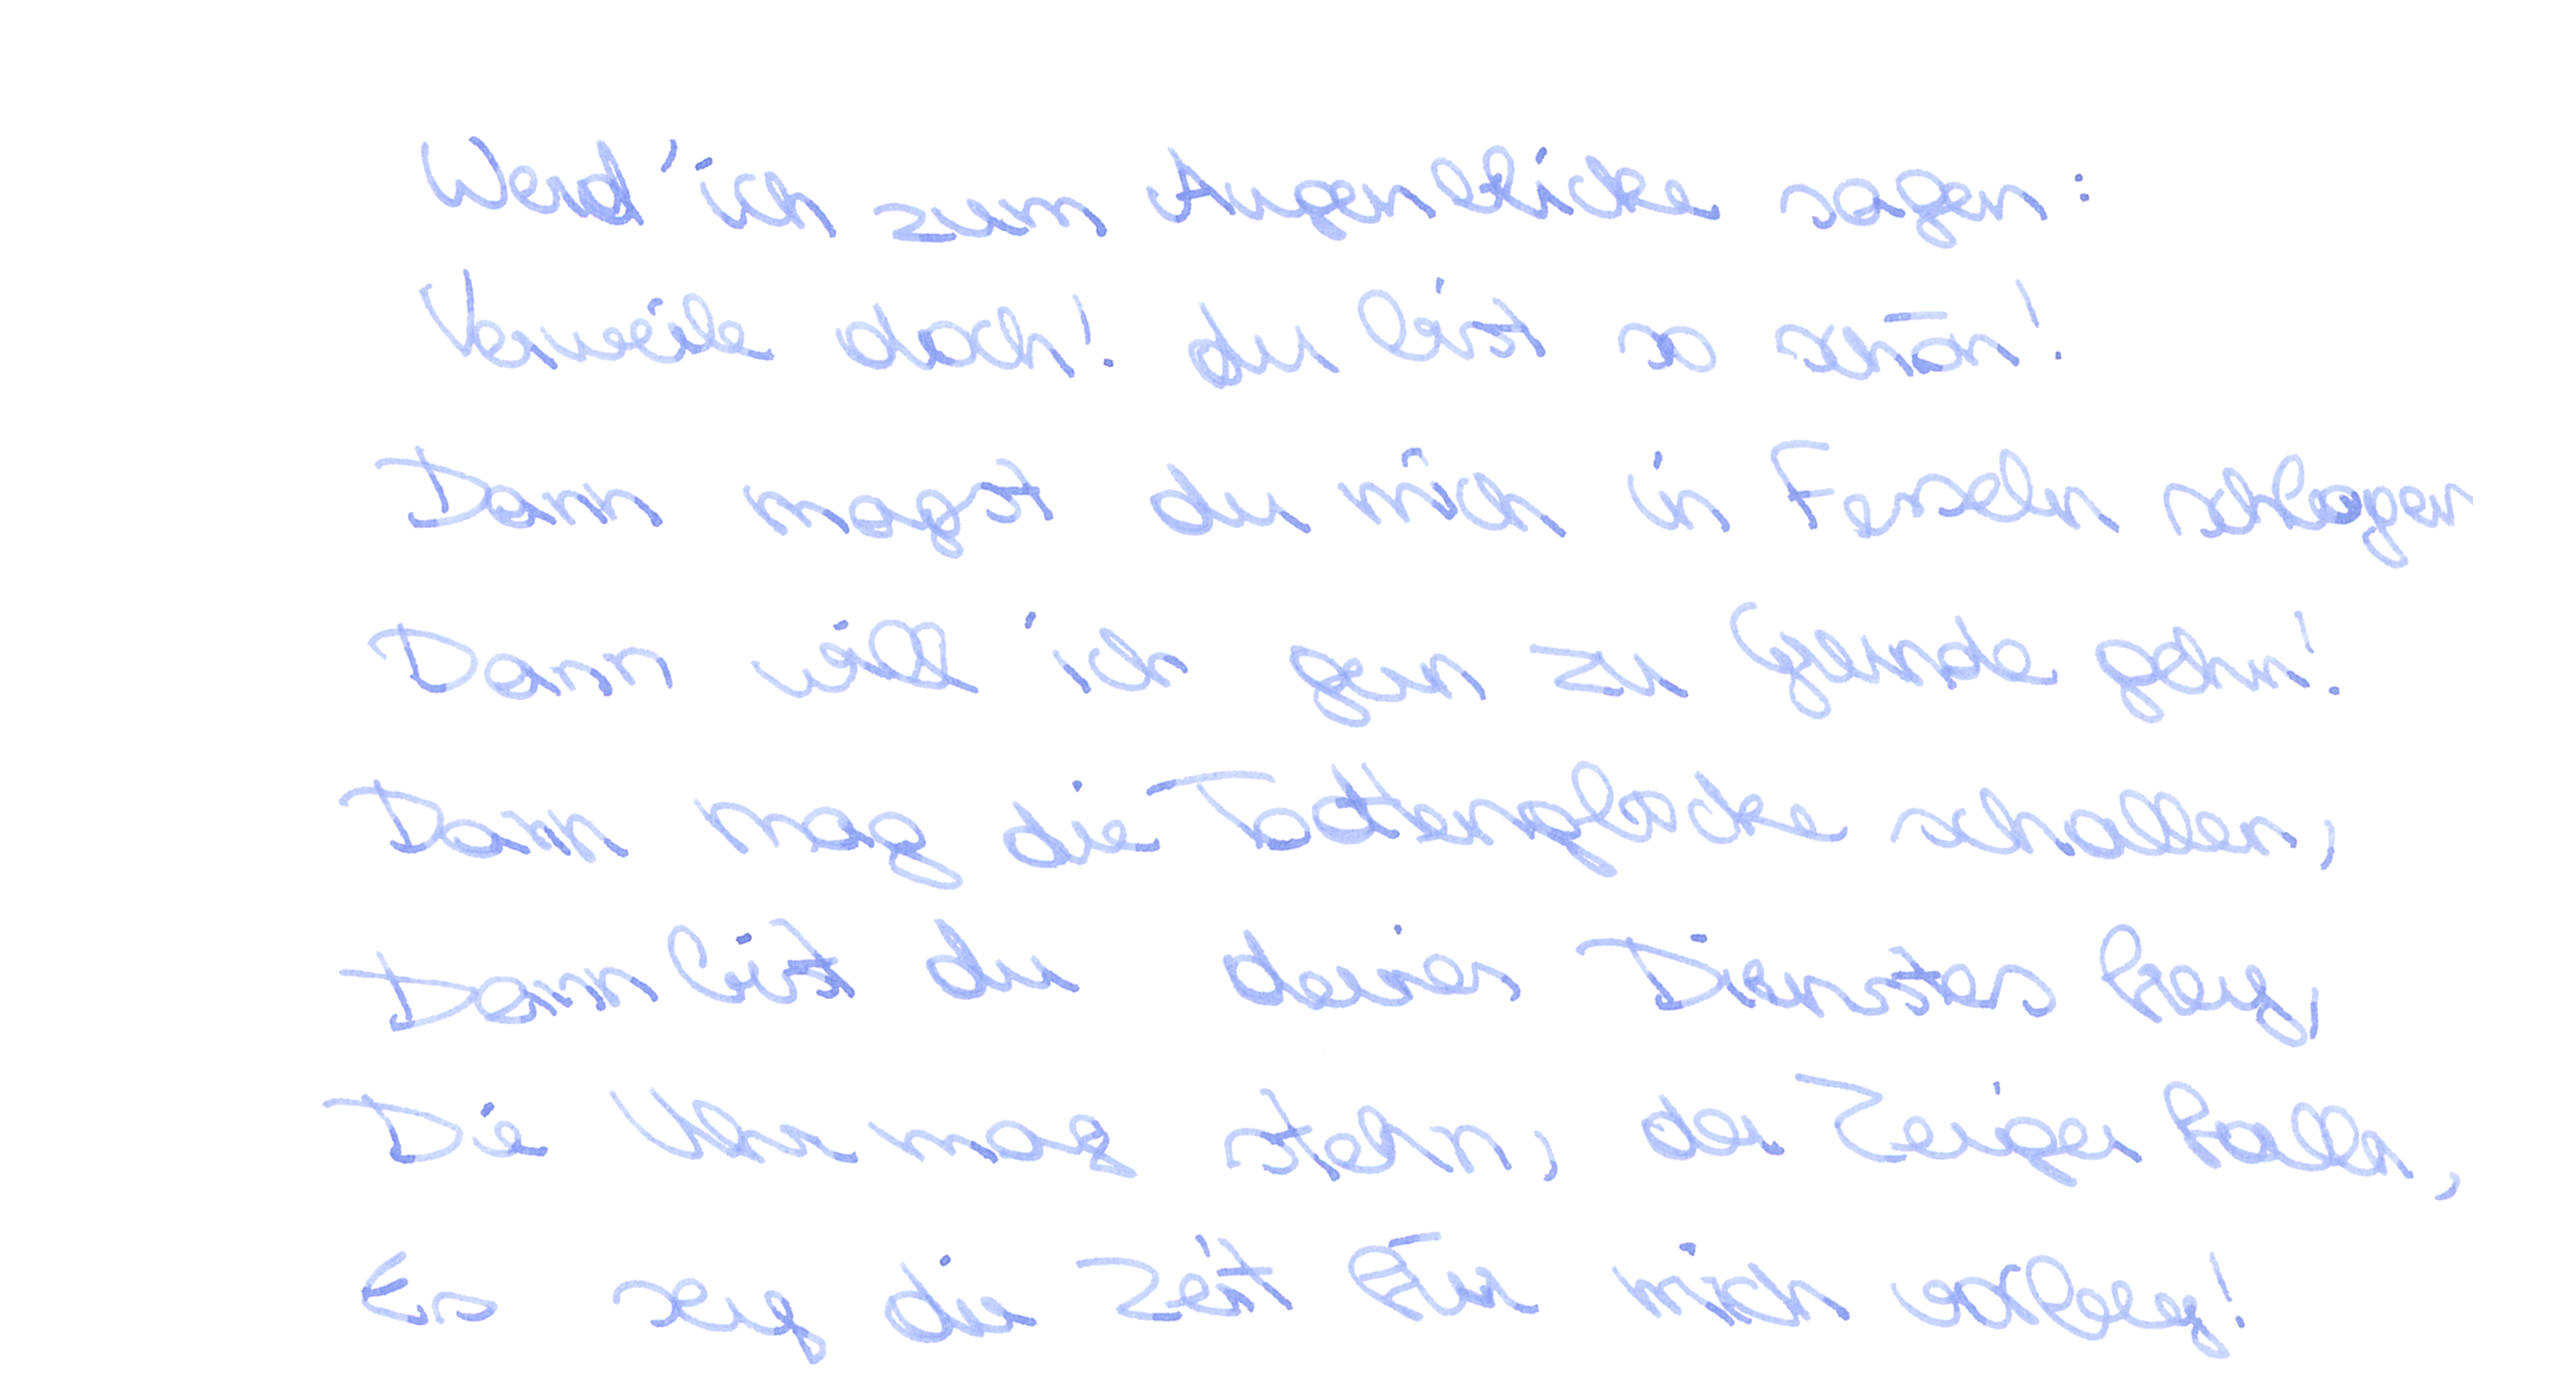 Werd' ich zum Augenblicke sagen:
Verweile doch! du bist so schön!
Dann magst du mich in Fesseln schlagen
Dann will ich gern zu Grunde gehn!
Dann mag die Todtenglocke schallen,
Dann bist du deines Dienstes frey,
Die Uhr mag stehn, der Zeiger falln,
Es sey die Zeit für mich vorbey!